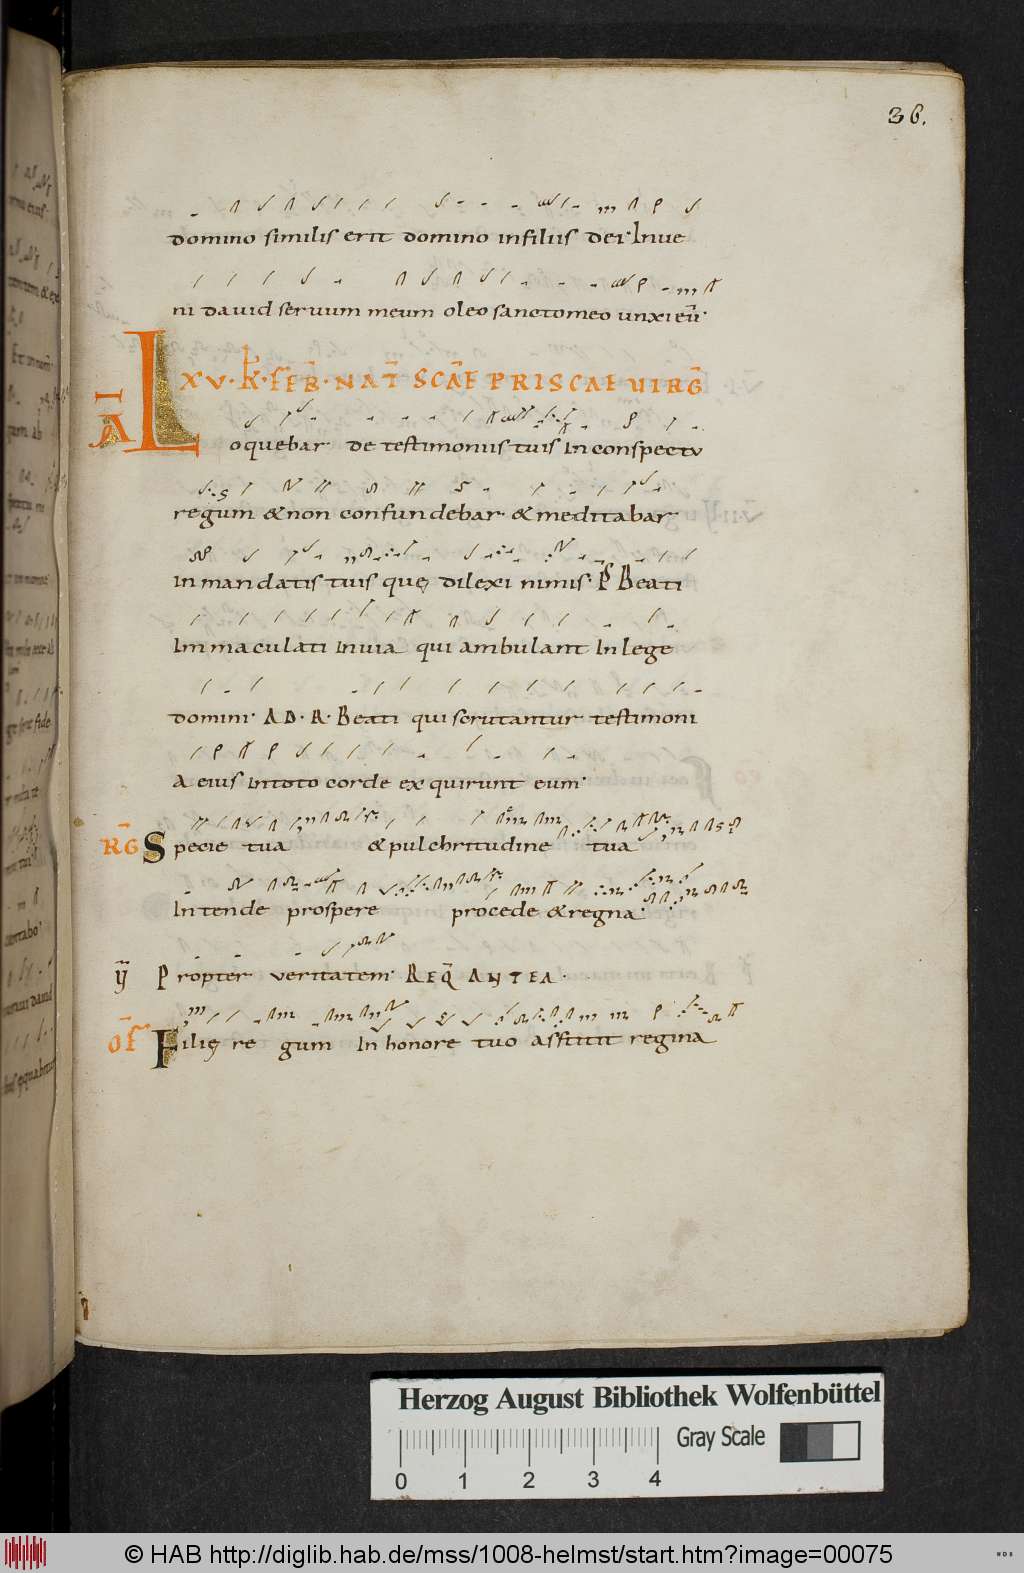 36.
domino similis erit domino infiliis dei· Inue
ni david servum meum oleo sanctomeo unxi eū·
XV·K̄·FEB̄·NAT̄ SCĀE PRISCAE UIRḠ
IA Loquebar de testimoniis tuis In conspectu
regum & non confundebar· & meditabar
In mandatis tuis quę dilexi nimis· P̄S Beati
Immaculati Inuia qui ambulant In lege
domini· AD· R· Beati qui scrutantur testimoni
a eius Intoto corde exquirunt eum·
R̄G Specie tua & pulchritudine tua
Intende prospere procede & regna·
ẏ Propter veritatem· REQ̄ ANTEA·
ŌF Filię regum In honore tuo asstitit regina
Herzog August Bibliothek Wolfenbüttel
Gray Scale
0 1 2 3 4
© HAB http://diglib.hab.de/mss/1008-helmst/start.htm?image=00075